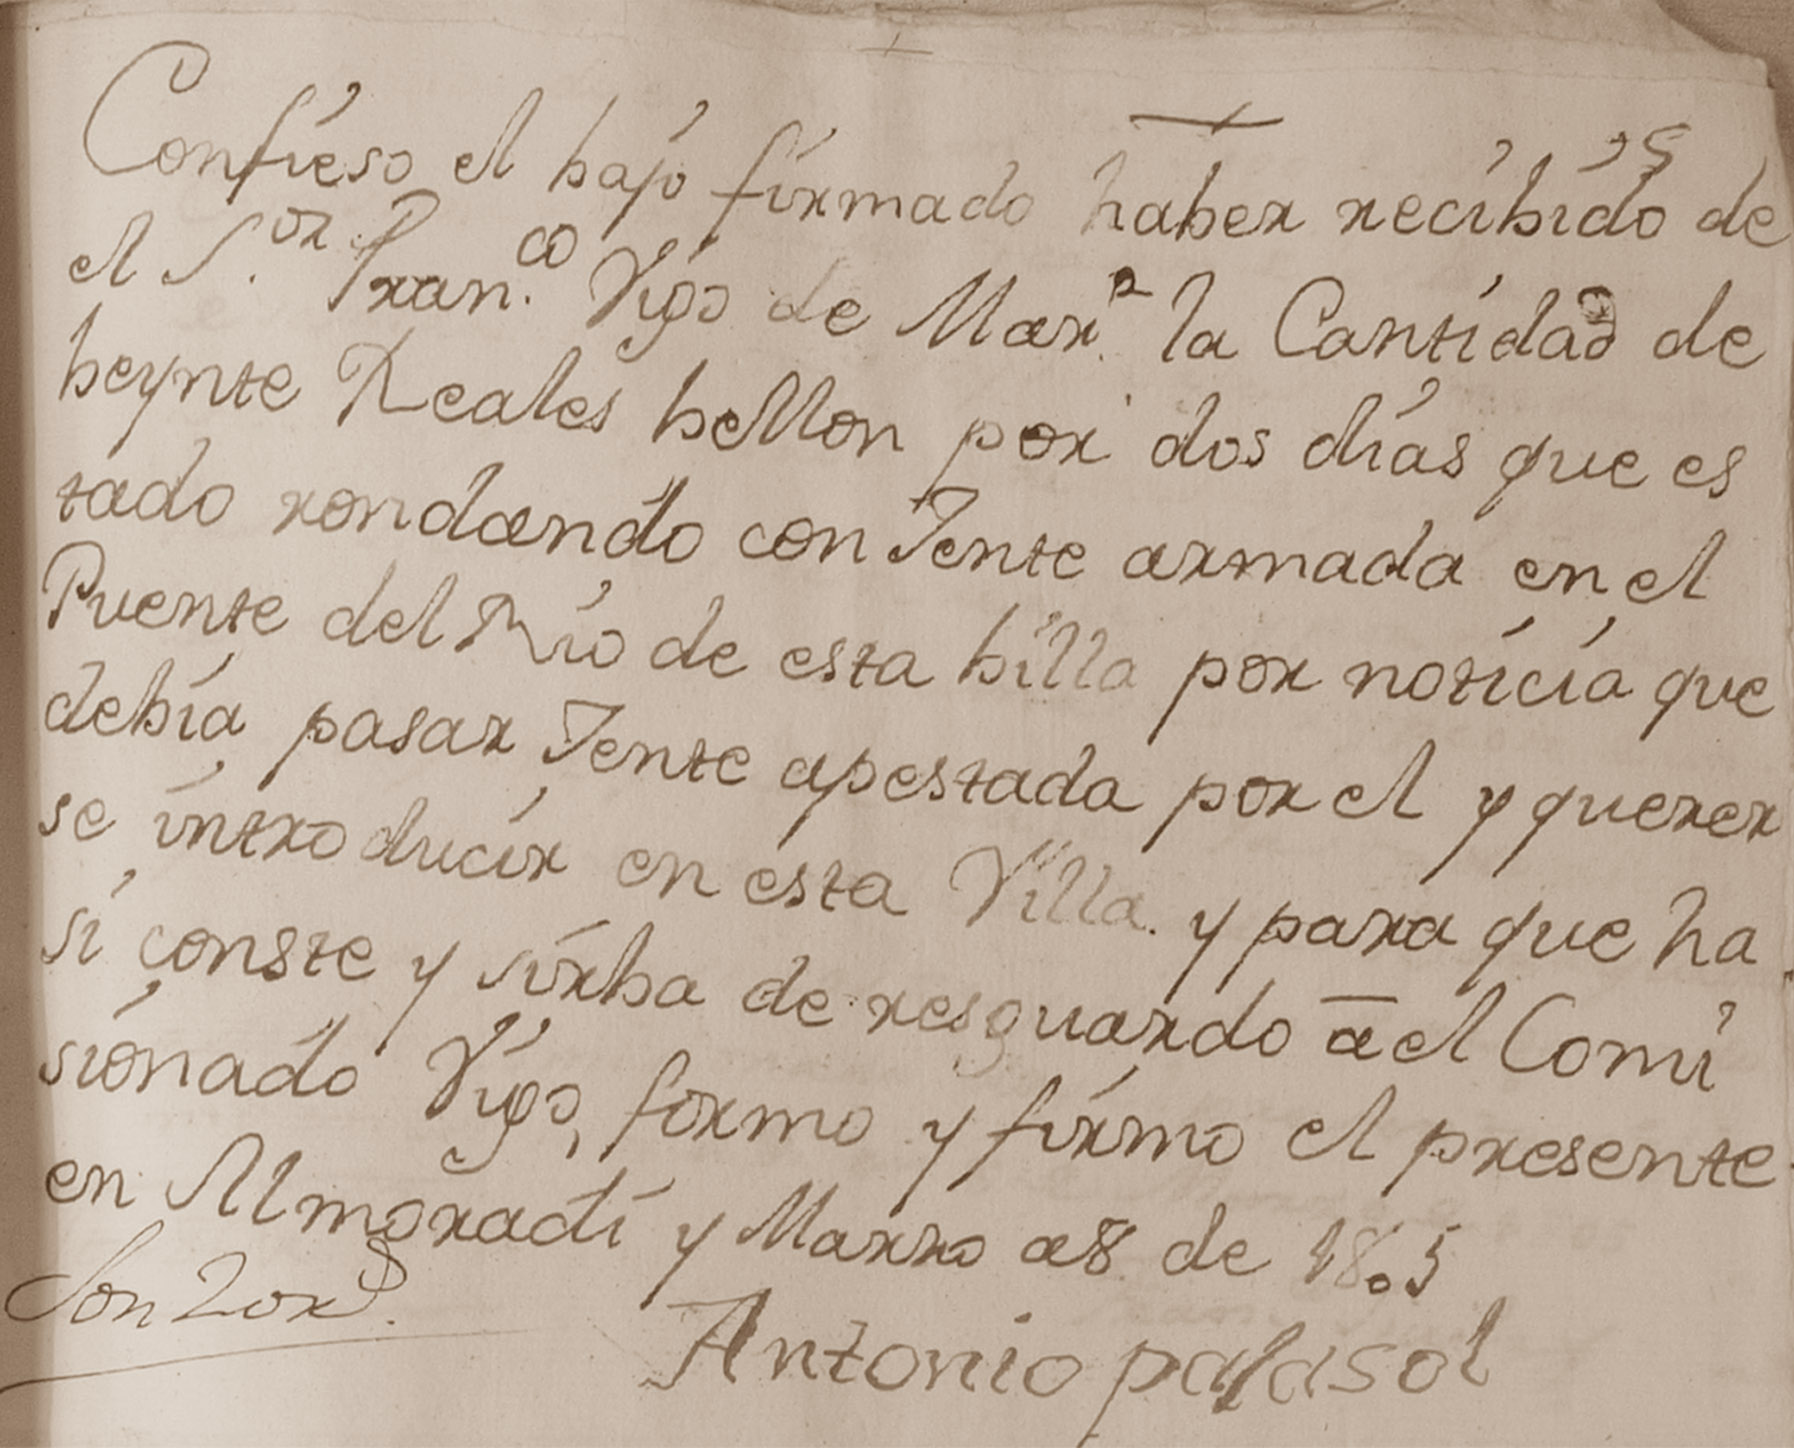 25
Confieso el bajo firmado haber recibido de
el S.or Fran.co Vigo de Mar.n la Cantidad de
beynte Reales bellon por dos dias que es
tado rondando con Jente armada en el
Puente del Rio de esta billa por noticia que
debia pasar Jente apestada por el y querer
se introducir en esta Villa. y para que ha
si conste y sirba de resguardo a el Comi
sionado Vigo, formo y firmo el presente
en Almoradi y Marzo a 8 de 1805
Son 20 r.s
Antonio palasol